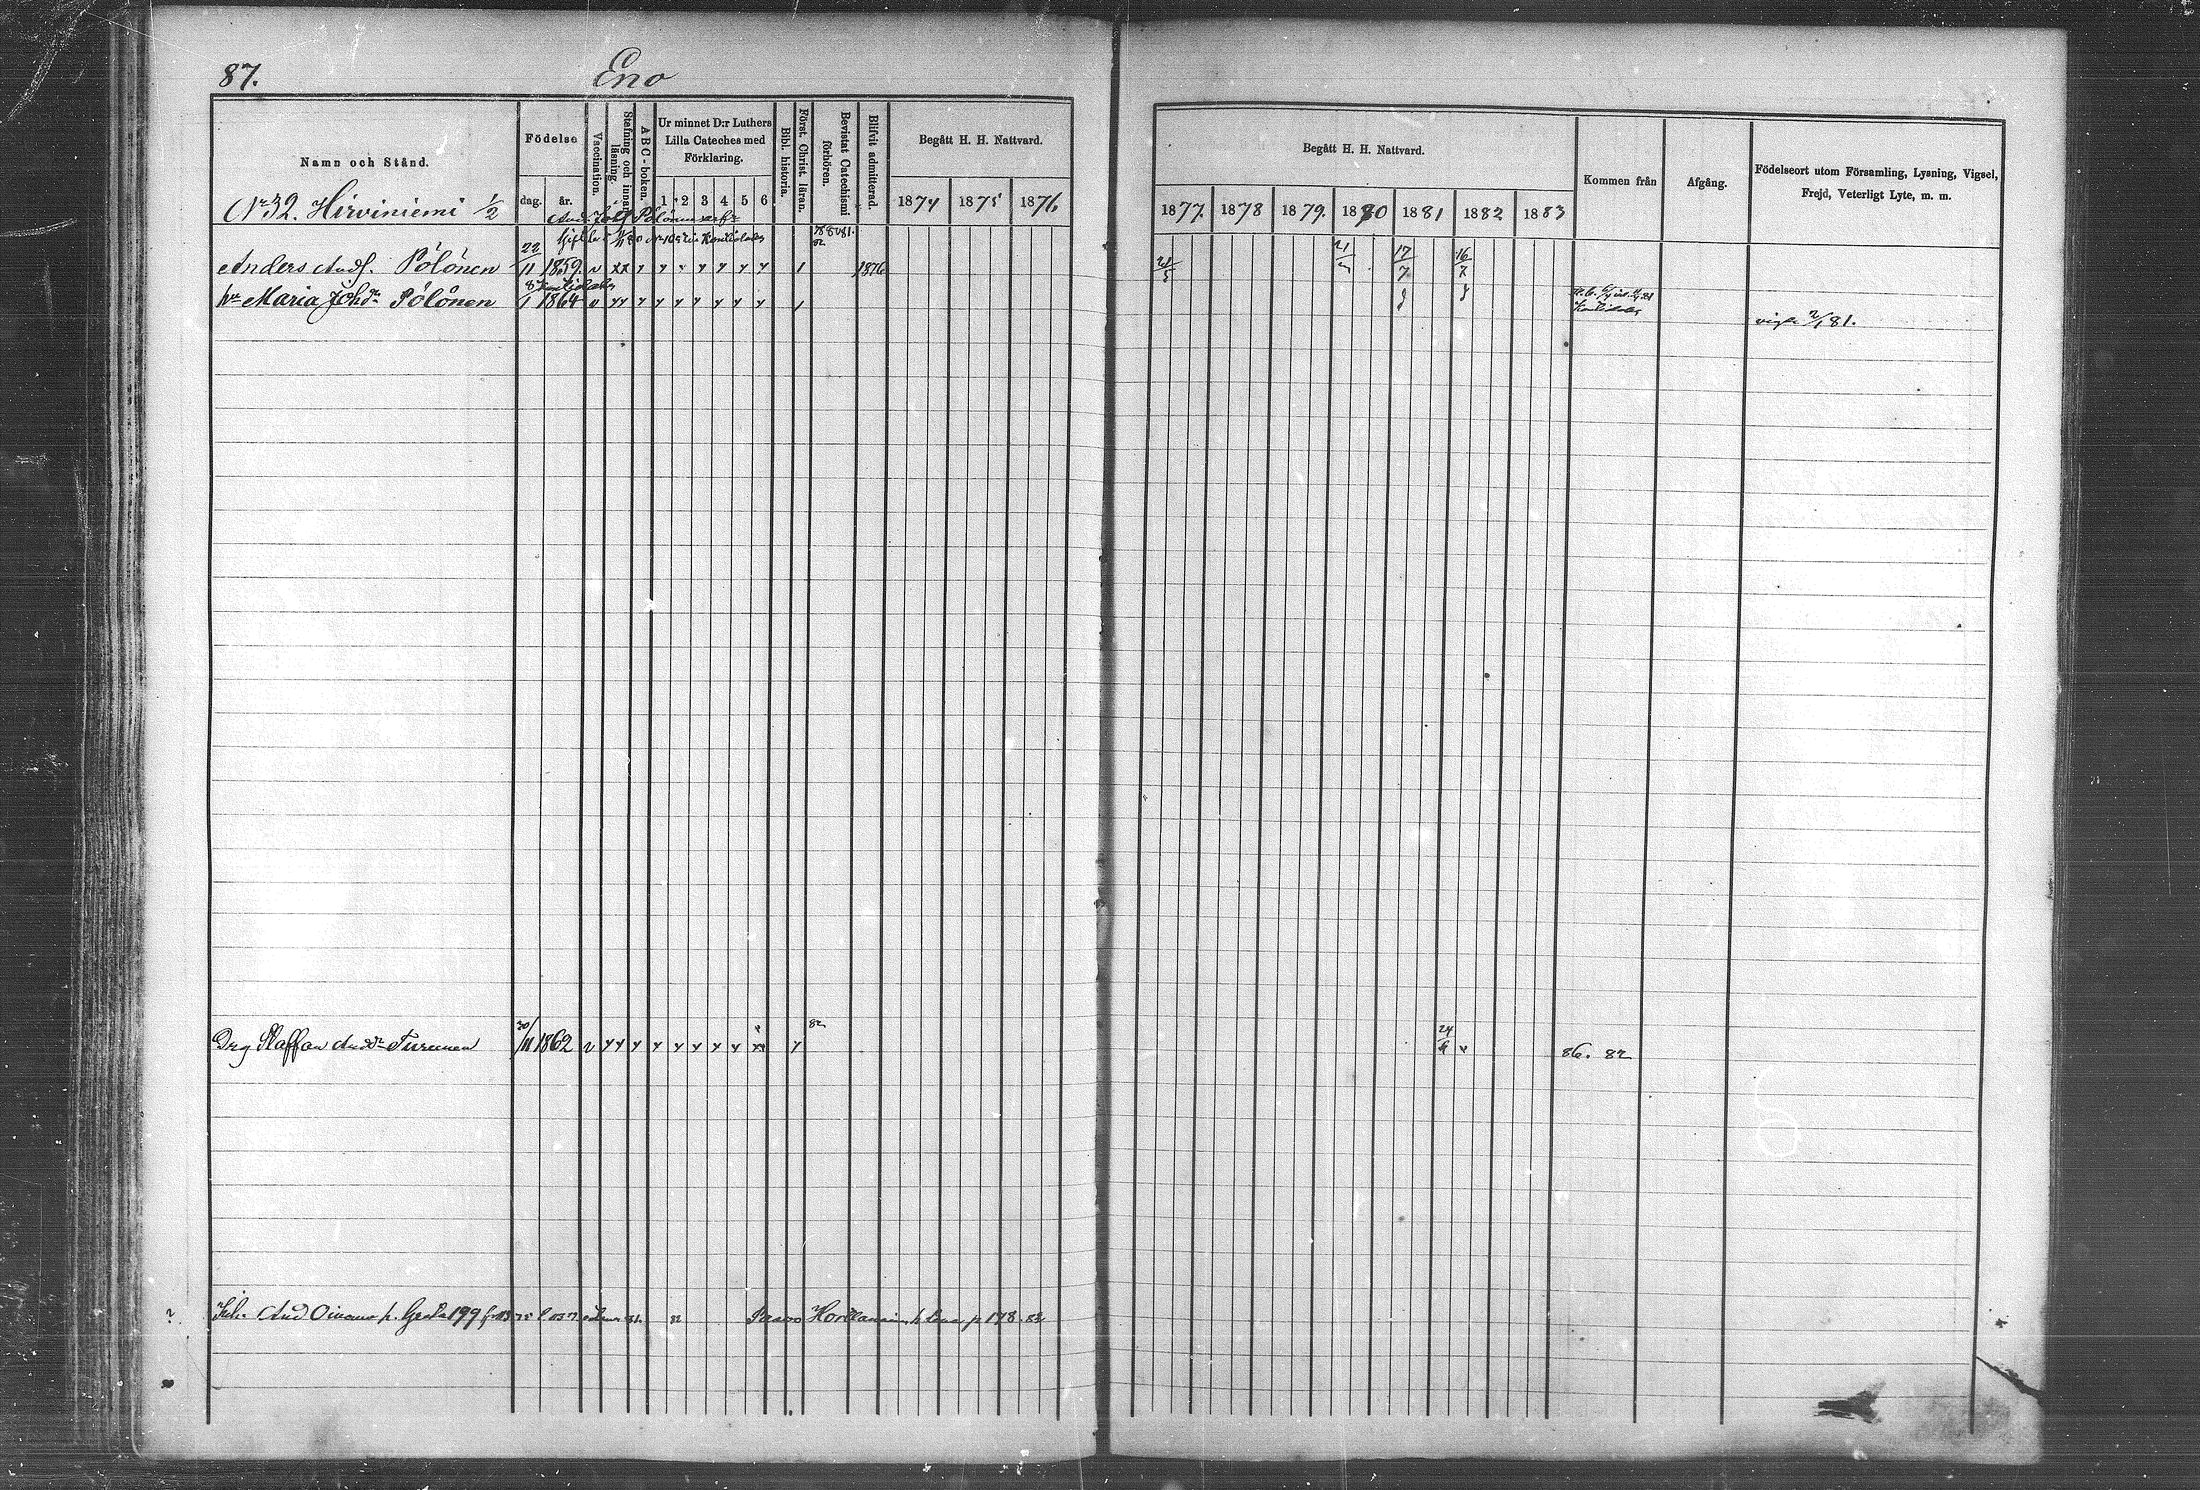 87.
Eno
Namn och Stånd.
Födelse
dag.
år.
Vaccination.
Stafning och innanläsning.
ABC-boken.
Ur minnet D:r Luthers
Lilla Cateches med
Förklaring.
1 2 3 4 5 6
Bibl. historia.
Först. Christ. läran.
Bevistat Catechismi förhören.
Blifvit admitterad.
Begått H. H. Nattvard.
1874 1875 1876.
Begått H. H. Nattvard.
1877. 1878 1879. 1880 1881 1882 1883
Kommen från
Afgång.
Födelseort utom Församling, Lysning, Vigsel,
Frejd, Veterligt Lyte, m. m.
No 32. Hirviniemi 1/2
And. Pölönen
78 80 81.
82
Anders Andf. Pölönen 22/11 1859. v xx 1876 21/5 17/7 16/7
Kontiolaks
hu Maria Johdr Pölönen 8/1 1864 v Kontiolaks
vigde 2/1 81.
Drg Staffan Turunen 30/11 1862 v 82 24/4 86. 82
And Oinonen h. Greta 199 82 Paavo Hortanain h Lena p 178. 82